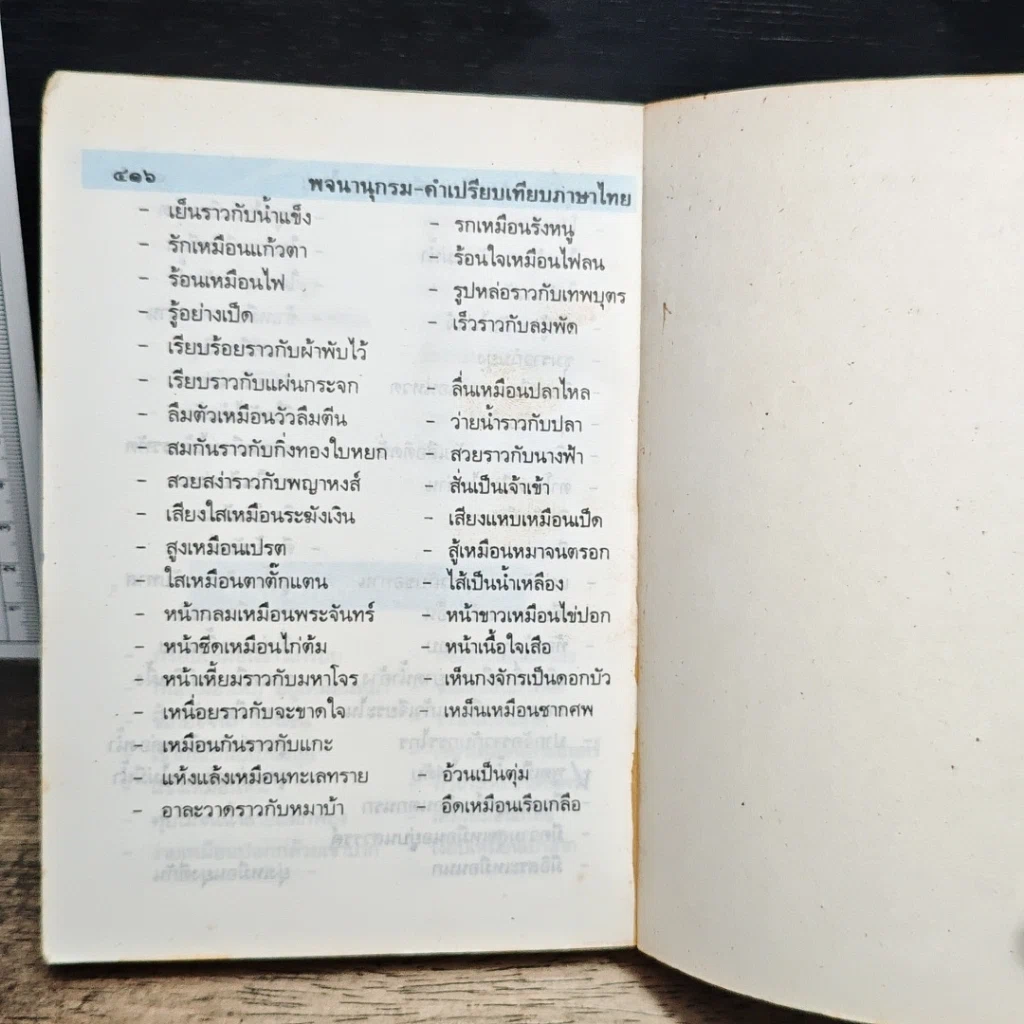 ๔๑๖ พจนานุกรม-คำเปรียบเทียบภาษาไทย
- เย็นราวกับน้ำแข็ง - รกเหมือนรังหนู
- รักเหมือนแก้วตา - ร้อนใจเหมือนไฟลน
- ร้อนเหมือนไฟ - รูปหล่อราวกับเทพบุตร
- รู้อย่างเป็ด - เร็วราวกับลมพัด
- เรียบร้อยราวกับผ้าพับไว้
- เรียบราวกับแผ่นกระจก - ลื่นเหมือนปลาไหล
- ลืมตัวเหมือนวัวลืมตีน - ว่ายน้ำราวกับปลา
- สมกันราวกับกิ่งทองใบหยก - สวยราวกับนางฟ้า
- สวยสง่าราวกับพญาหงส์ - สั่นเป็นเจ้าเข้า
- เสียงใสเหมือนระฆังเงิน - เสียงแหบเหมือนเป็ด
- สูงเหมือนเปรต - สู้เหมือนหมาจนตรอก
- ใสเหมือนตาตั๊กแตน - ไส้เป็นน้ำเหลือง
- หน้ากลมเหมือนพระจันทร์ - หน้าขาวเหมือนไข่ปอก
- หน้าซีดเหมือนไก่ต้ม - หน้าเนื้อใจเสือ
- หน้าเหี้ยมราวกับมหาโจร - เห็นกงจักรเป็นดอกบัว
- เหนื่อยราวกับจะขาดใจ - เหม็นเหมือนซากศพ
- เหมือนกันราวกับแกะ
- แห้งแล้งเหมือนทะเลทราย - อ้วนเป็นตุ่ม
- อาละวาดราวกับหมาบ้า - อืดเหมือนเรือเกลือ